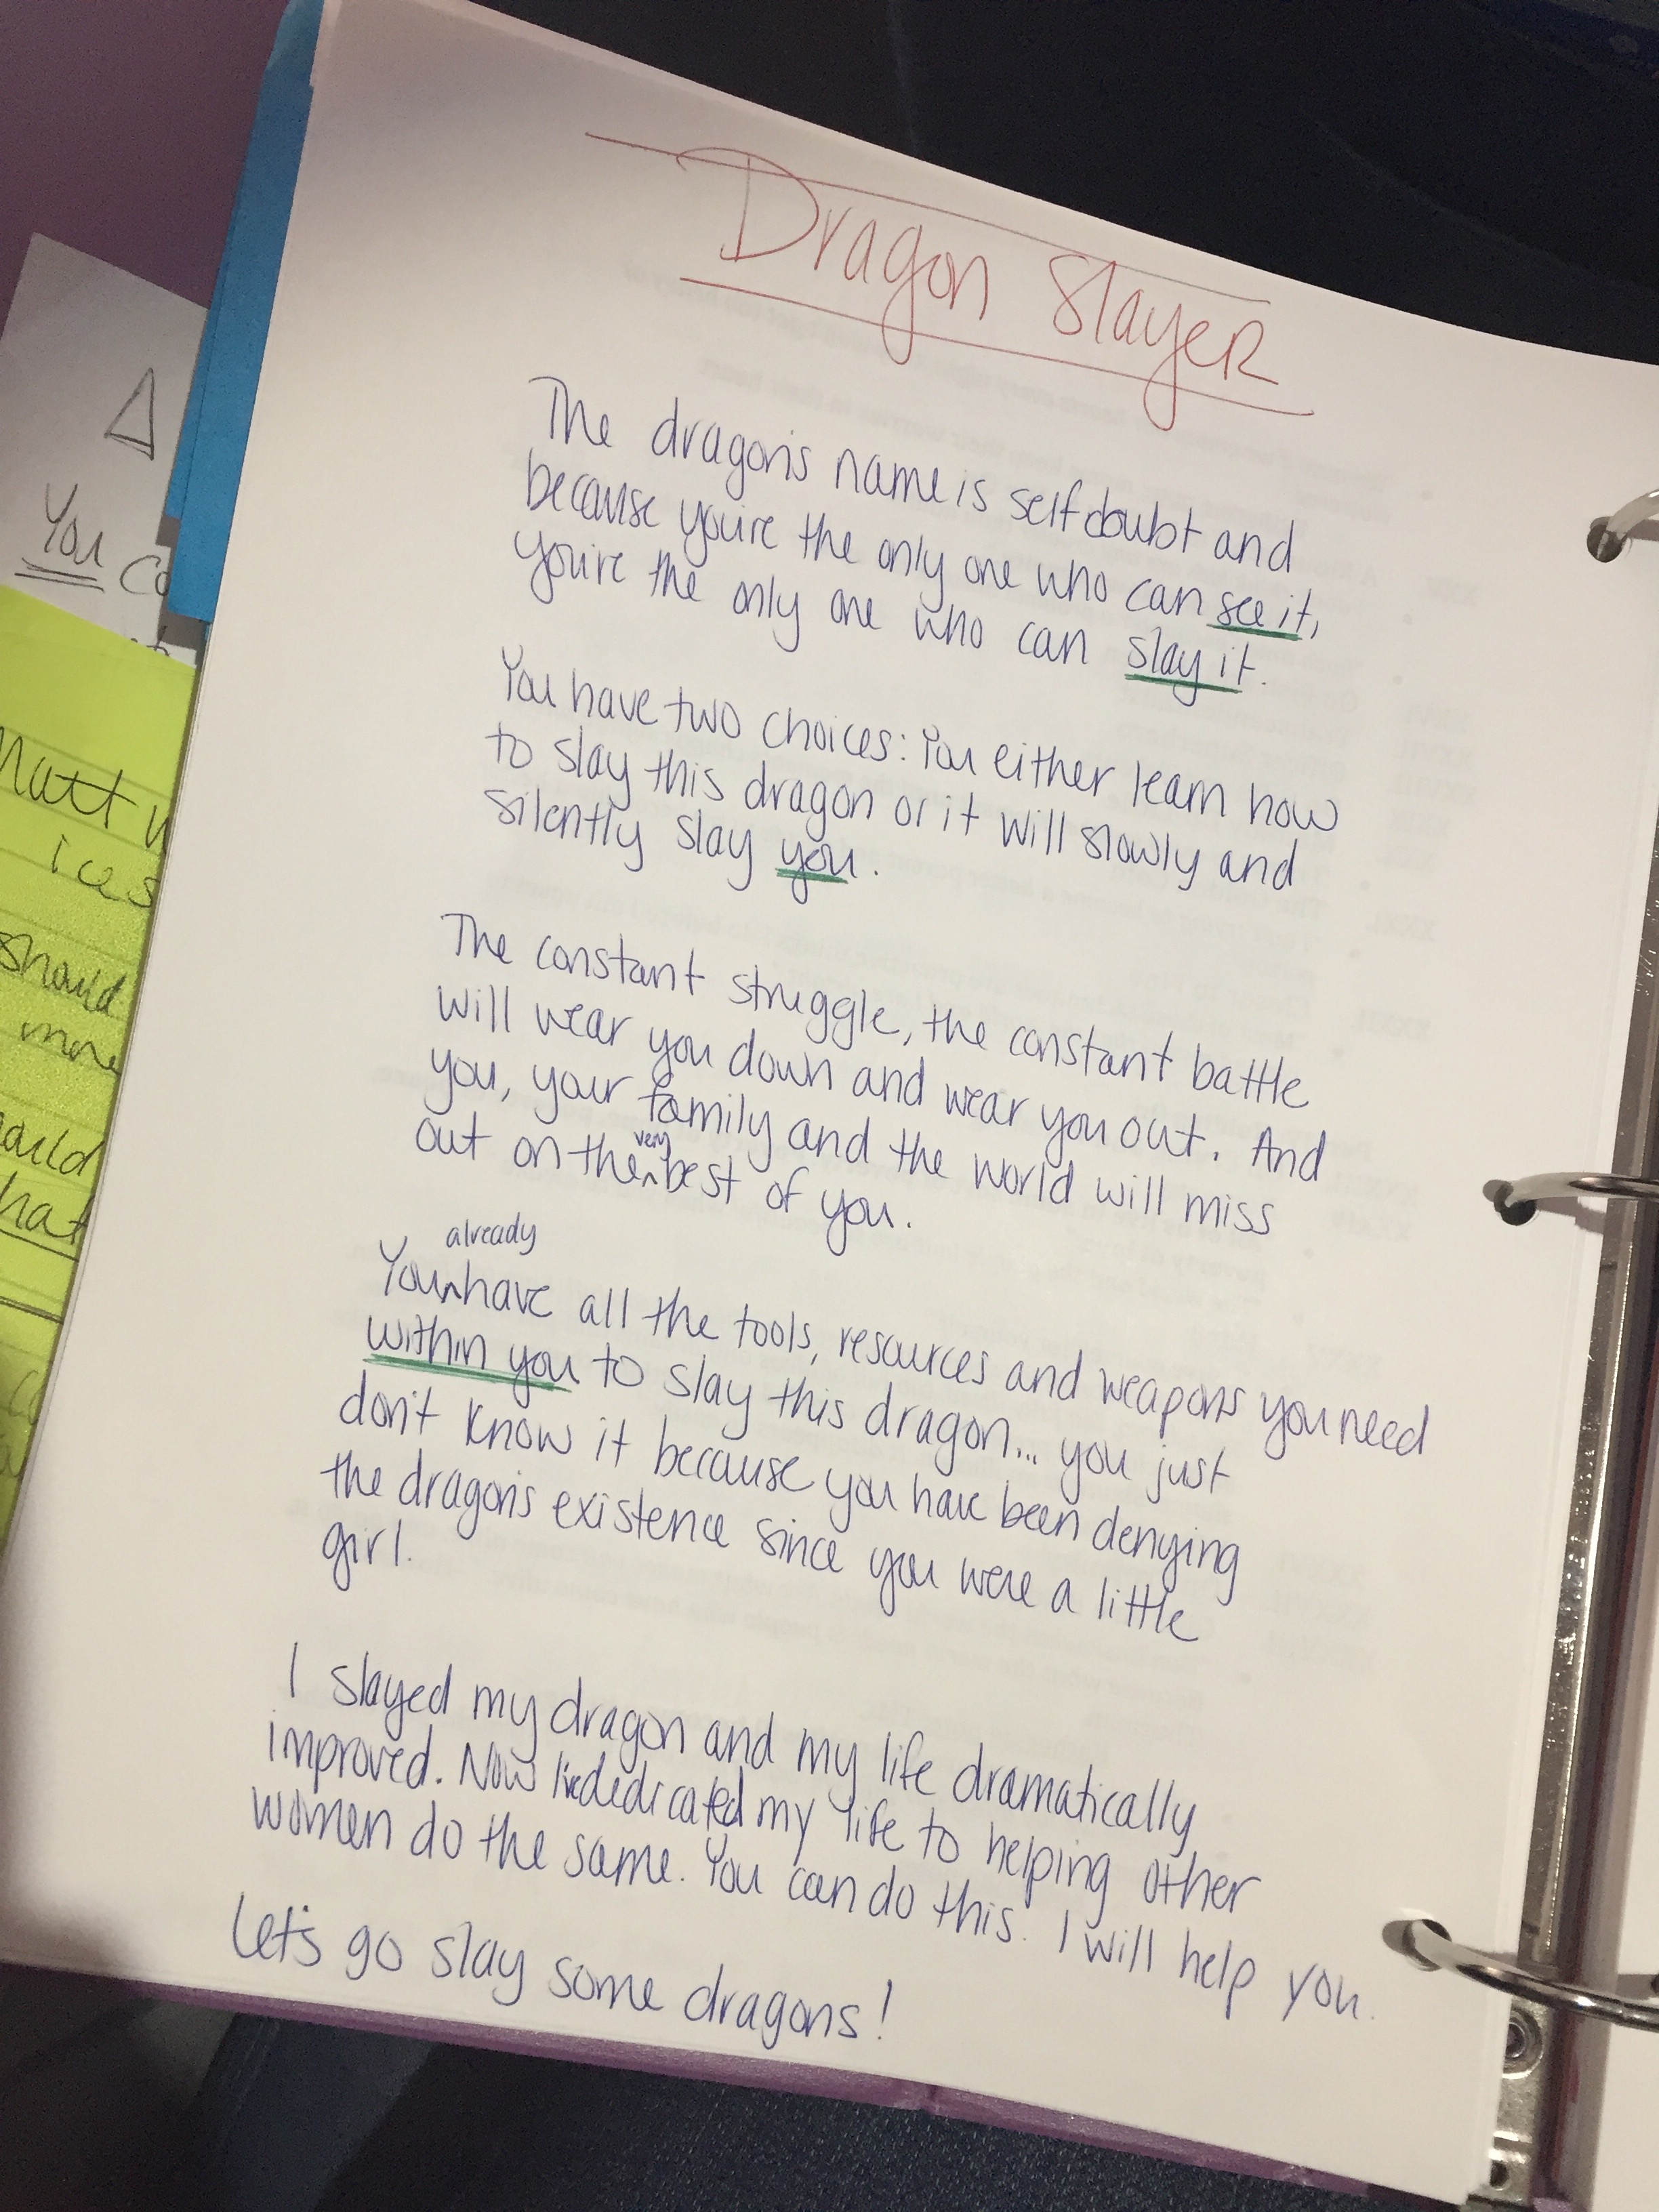 Dragon SlayeR
The dragon's name is self doubt and
because you're the only one who can see it,
you're the only one who can slay it.
You have two choices: You either learn how
to slay this dragon or it will slowly and
silently slay you.
The constant struggle, the constant battle
will wear you down and wear you out. And
you, your family and the world will miss
out on the very best of you.
You already have all the tools, resources and weapons you need
within you to slay this dragon... you just
don't know it because you have been denying
the dragon's existence since you were a little
girl.
I slayed my dragon and my life dramatically
improved. Now I've dedicated my life to helping other
women do the same. You can do this. I will help you.
Let's go slay some dragons!
You
ices
should
more